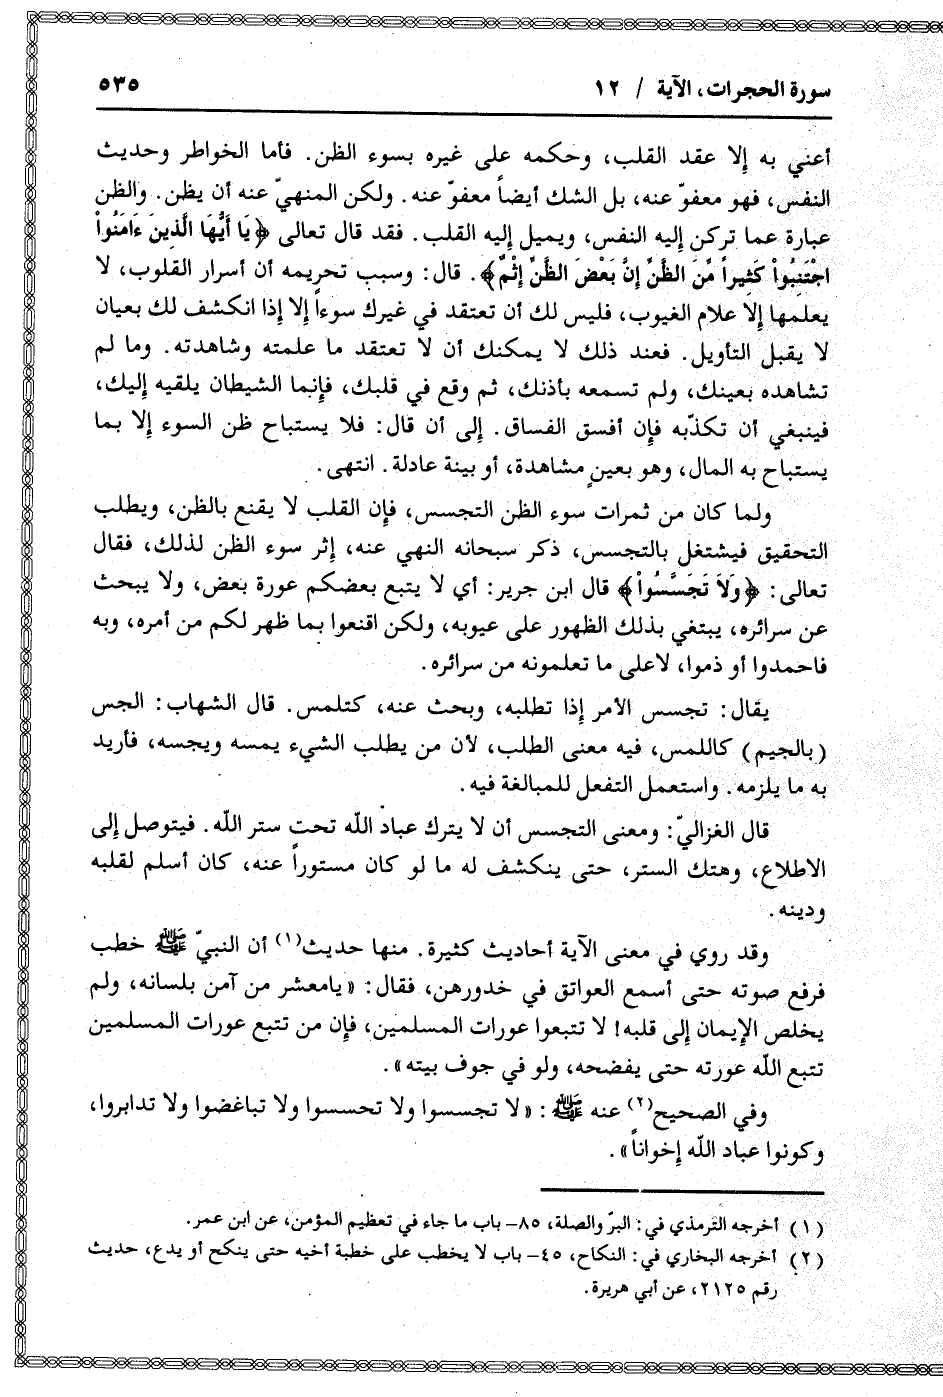 سورة الحجرات، الآية / ١٢
٥٣٥
أعني به إلا عقد القلب، وحكمه على غيره بسوء الظن. فأما الخواطر وحديث
النفس، فهو معفوّ عنه، بل الشك أيضاً معفوّ عنه. ولكن المنهيّ عنه أن يظن. والظن
عبارة عما تركن إليه النفس، ويميل إليه القلب. فقد قال تعالى ﴿يَا أَيُّهَا الَّذِينَ ءَامَنُواْ
اجْتَنِبُواْ كَثِيراً مِّنَ الظَّنِّ إِنَّ بَعْضَ الظَّنِّ إِثْمٌ﴾. قال: وسبب تحريمه أن أسرار القلوب، لا
يعلمها إلا علام الغيوب، فليس لك أن تعتقد في غيرك سوءاً إلا إذا انكشف لك بعيان
لا يقبل التأويل. فعند ذلك لا يمكنك أن لا تعتقد ما علمته وشاهدته. وما لم
تشاهده بعينك، ولم تسمعه بأذنك، ثم وقع في قلبك، فإنما الشيطان يلقيه إليك،
فينبغي أن تكذّبه فإن أفسق الفساق. إلى أن قال: فلا يستباح ظن السوء إلا بما
يستباح به المال، وهو بعينٍ مشاهدة، أو بينة عادلة. انتهى.
ولما كان من ثمرات سوء الظن التجسس، فإن القلب لا يقنع بالظن، ويطلب
التحقيق فيشتغل بالتجسس، ذكر سبحانه النهي عنه، إثر سوء الظن لذلك، فقال
تعالى: ﴿وَلاَ تَجَسَّسُواْ﴾ قال ابن جرير: أي لا يتبع بعضكم عورة بعض، ولا يبحث
عن سرائره، يبتغي بذلك الظهور على عيوبه، ولكن اقنعوا بما ظهر لكم من أمره، وبه
فاحمدوا أو ذموا، لاعلى ما تعلمونه من سرائره.
يقال: تجسس الأمر إذا تطلبه، وبحث عنه، كتلمس. قال الشهاب: الجس
(بالجيم) كاللمس، فيه معنى الطلب، لأن من يطلب الشيء يمسه ويجسه، فأريد
به ما يلزمه. واستعمل التفعل للمبالغة فيه.
قال الغزاليّ: ومعنى التجسس أن لا يترك عباد اللّه تحت ستر اللّه. فيتوصل إلى
الاطلاع، وهتك الستر، حتى ينكشف له ما لو كان مستوراً عنه، كان أسلم لقلبه
ودينه.
وقد روي في معنى الآية أحاديث كثيرة. منها حديث(١) أن النبيّ ﷺ خطب
فرفع صوته حتى أسمع العواتق في خدورهن، فقال: «يامعشر من آمن بلسانه، ولم
يخلص الإيمان إلى قلبه! لا تتبعوا عورات المسلمين، فإن من تتبع عورات المسلمين
تتبع اللّه عورته حتى يفضحه، ولو في جوف بيته».
وفي الصحيح(٢) عنه ﷺ: «لا تجسسوا ولا تحسسوا ولا تباغضوا ولا تدابروا،
وكونوا عباد اللّه إخواناً».
(١) أخرجه الترمذي في: البرّ والصلة، ٨٥- باب ما جاء في تعظيم المؤمن، عن ابن عمر.
(٢) أخرجه البخاري في: النكاح، ٤٥- باب لا يخطب على خطبة أخيه حتى ينكح أو يدع، حديث
رقم ٢١٢٥، عن أبي هريرة.